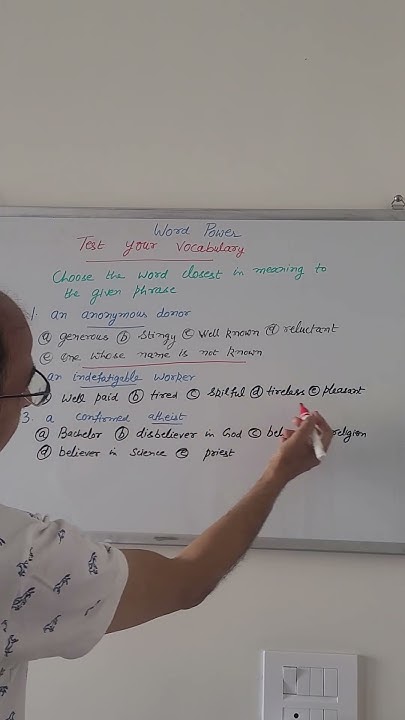 Word Power
Test your vocabulary
Choose the word closest in meaning to
the given phrase
1. an anonymous donor
(a) generous (b) stingy (c) well known (d) reluctant
(e) One whose name is not known
an indefatigable worker
well paid (b) tired (c) skilful (d) tireless (e) pleasant
3. a confirmed atheist
(a) Bachelor (b) disbeliever in God (c) religion
(d) believer in science (e) priest